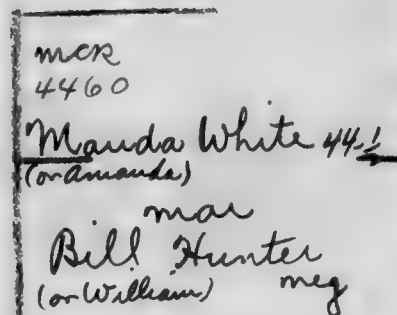 MCR
4460
Manda White 44-1
(or Amanda)
mar
Bill Hunter
(or William) neg